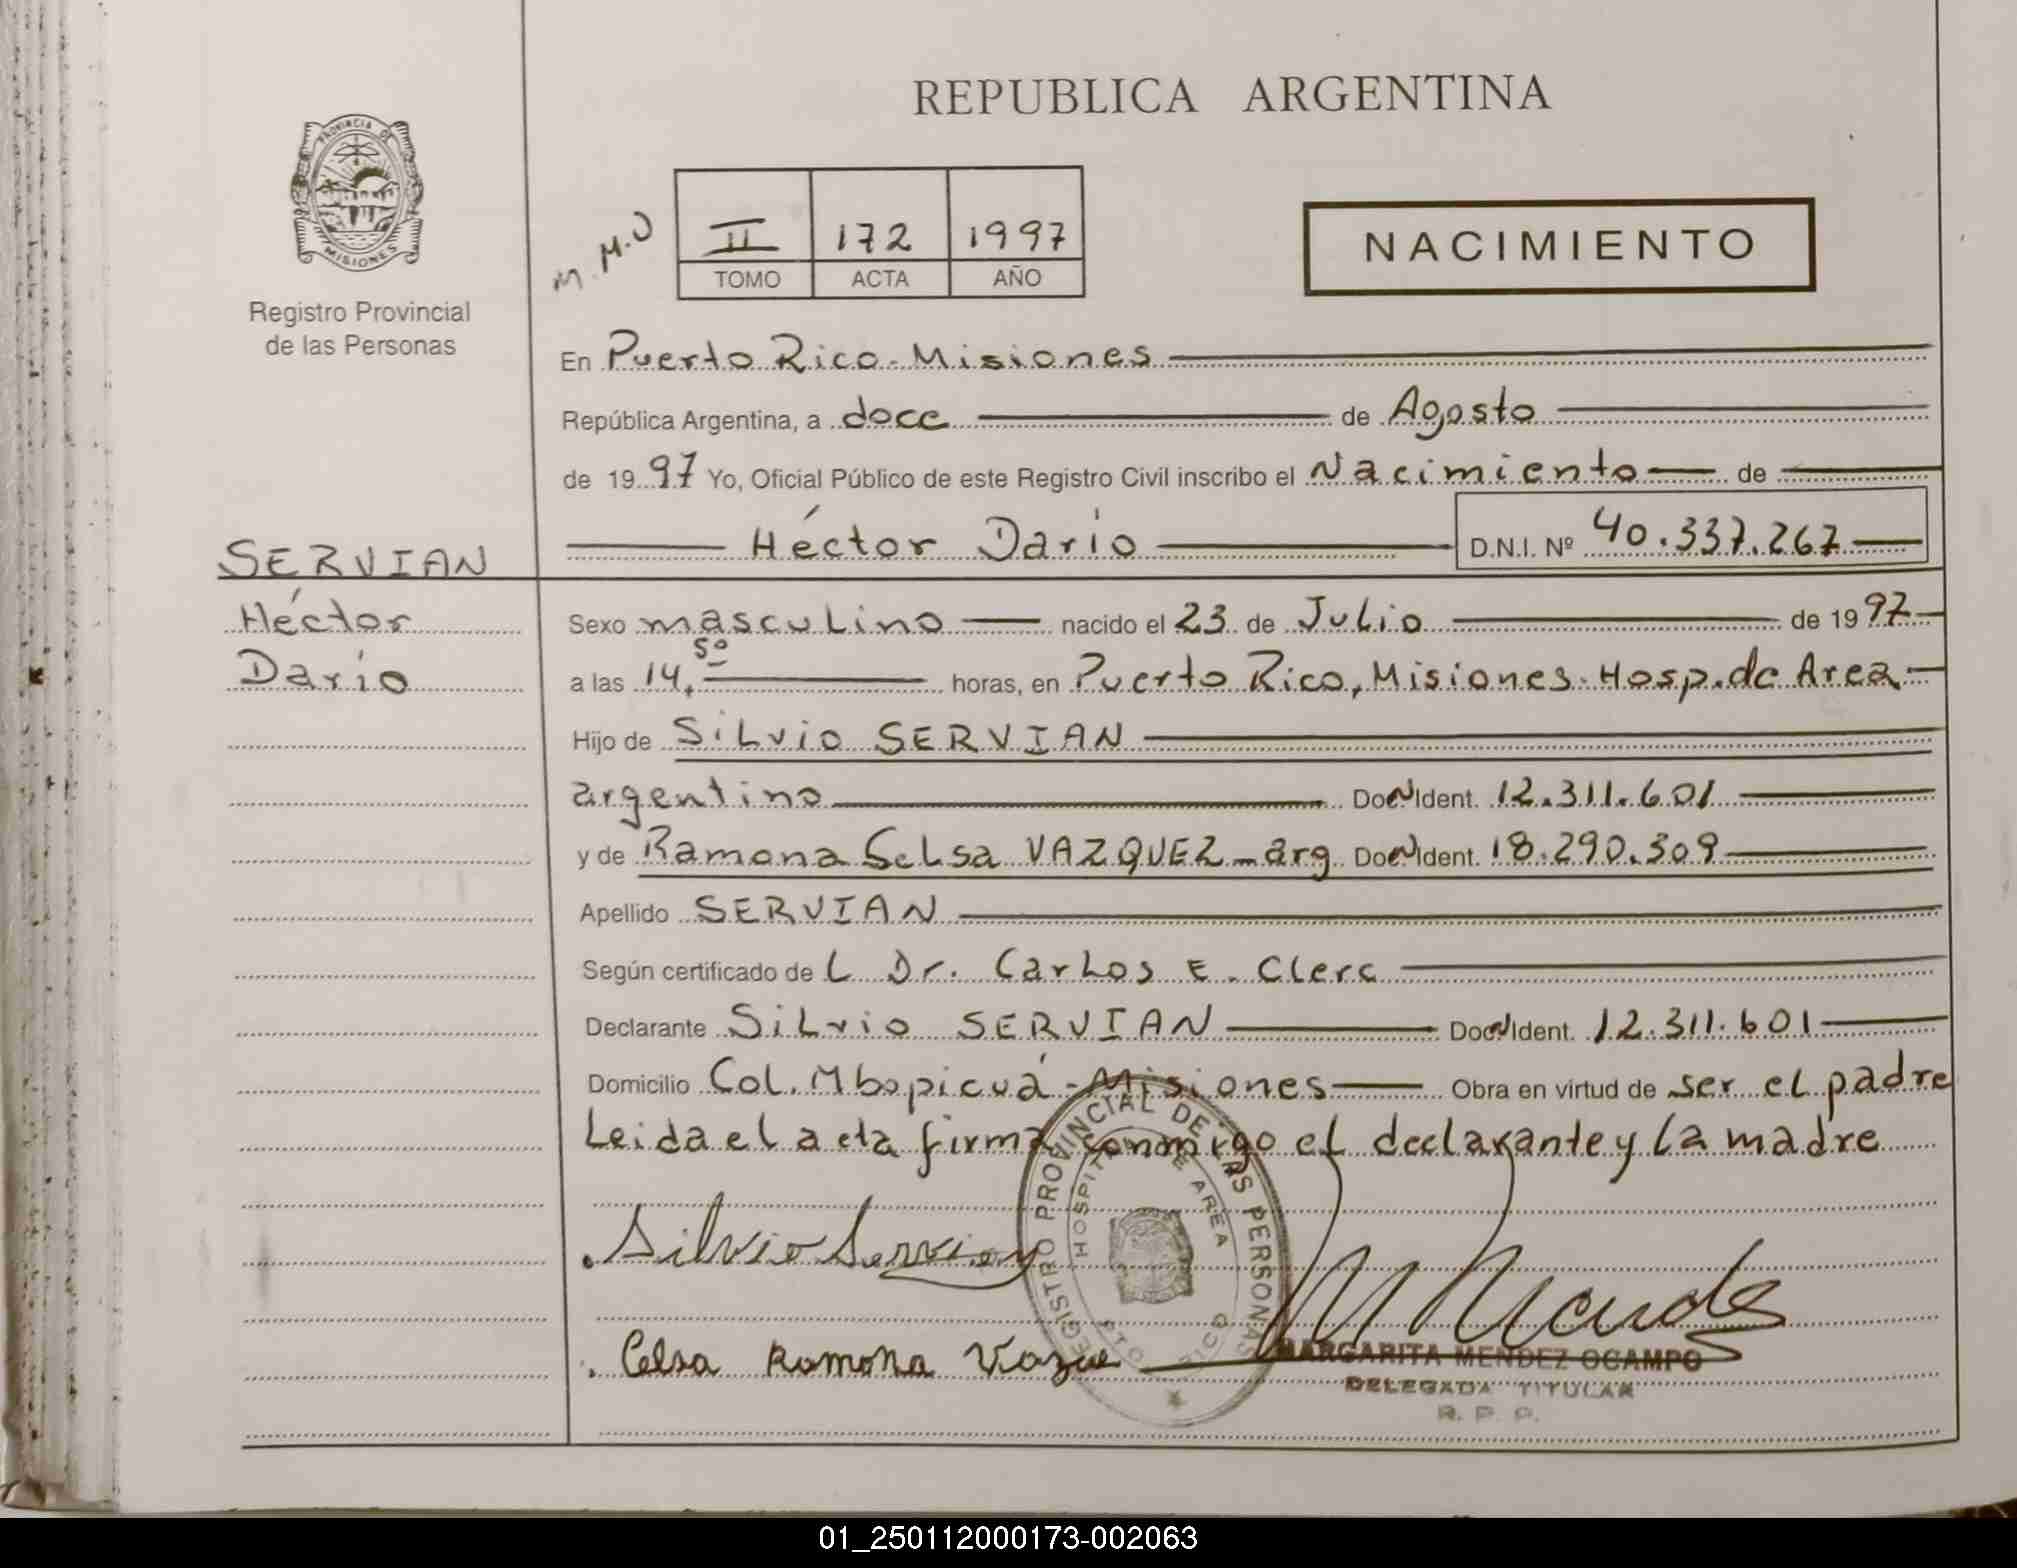 REPUBLICA ARGENTINA
PROVINCIA DE MISIONES
Registro Provincial
de las Personas
M.M.J
II 172 1997
TOMO ACTA AÑO
NACIMIENTO
En Puerto Rico-Misiones
República Argentina, a doce de Agosto
de 1997 Yo, Oficial Público de este Registro Civil inscribo el Nacimiento de
Héctor Darío D.N.I. Nº 40.337.267
SERVIAN
Héctor
Darío
Sexo masculino nacido el 23 de Julio de 1997
a las 14,50 horas, en Puerto Rico, Misiones. Hosp. de Area
Hijo de Silvio SERVIAN
argentino Doc N Ident. 12.311.601
y de Ramona Selsa VAZQUEZ - arg Doc N Ident. 18.290.309
Apellido SERVIAN
Según certificado del Dr. Carlos E. Clerc
Declarante Silvio SERVIAN Doc N Ident. 12.311.601
Domicilio Col. Mbopicuá - Misiones Obra en virtud de ser el padre
Leida el acta firma conmigo el declarante y la madre
Silvio Servian
REGISTRO PROVINCIAL DE LAS PERSONAS
HOSPITAL DE AREA
PTO RICO
M Mendez
Celsa Ramona
MARGARITA MENDEZ OCAMPO
DELEGADA TITULAR
R. P. P.
01_250112000173-002063